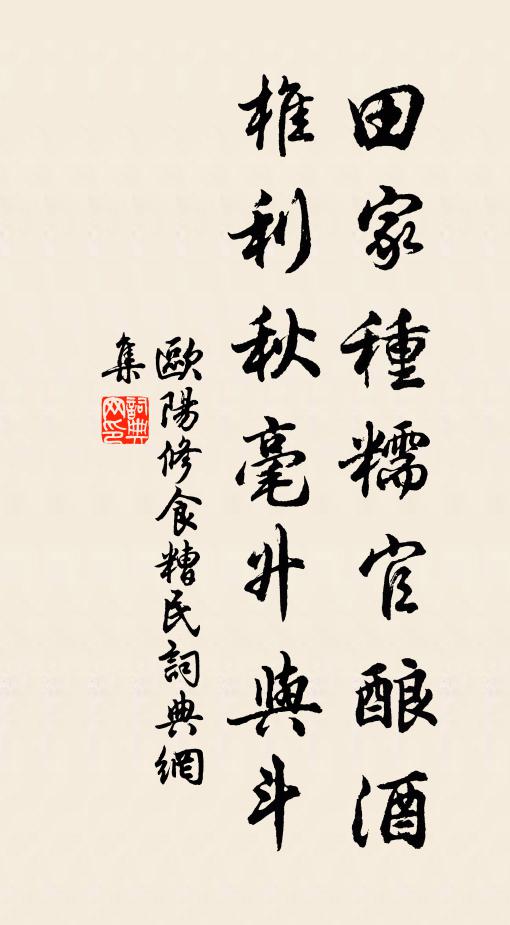 田家種糯官酿酒
榷利秋毫升與斗
歐陽修食糟民詞典網
集
詞典
网印